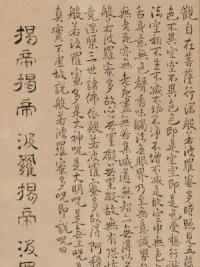 觀自在菩薩行深般若波羅蜜多時照見五
色不異空空不異色色即是空空即是色受想行
法空相不生不滅不垢不淨不增不減是故空中無色
舌身意無色聲香味觸法無眼界乃至無意識界
無老死亦無老死盡無苦集滅道無智亦無
般若波羅蜜多故心無罣礙無罣礙故無有恐
竟涅槃三世諸佛依般若波羅蜜多故得阿耨
般若波羅蜜多是大神咒是大明咒是無上咒
真實不虛故說般若波羅蜜多咒即說咒曰
揭帝揭帝波羅揭帝波羅